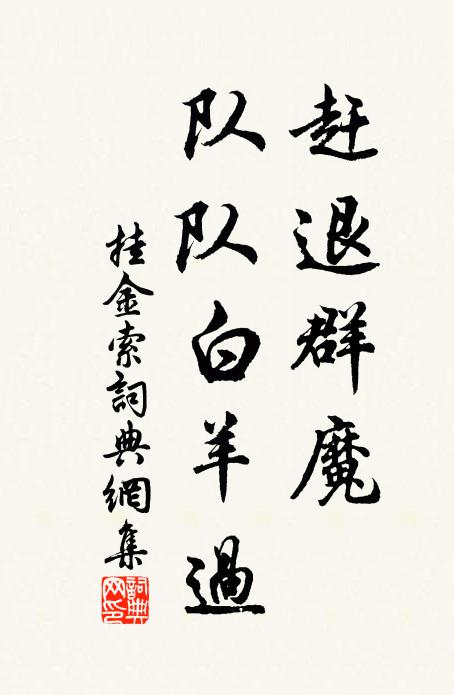 赶退群魔
队队白羊過
挂金索詞典網集
詞典网印